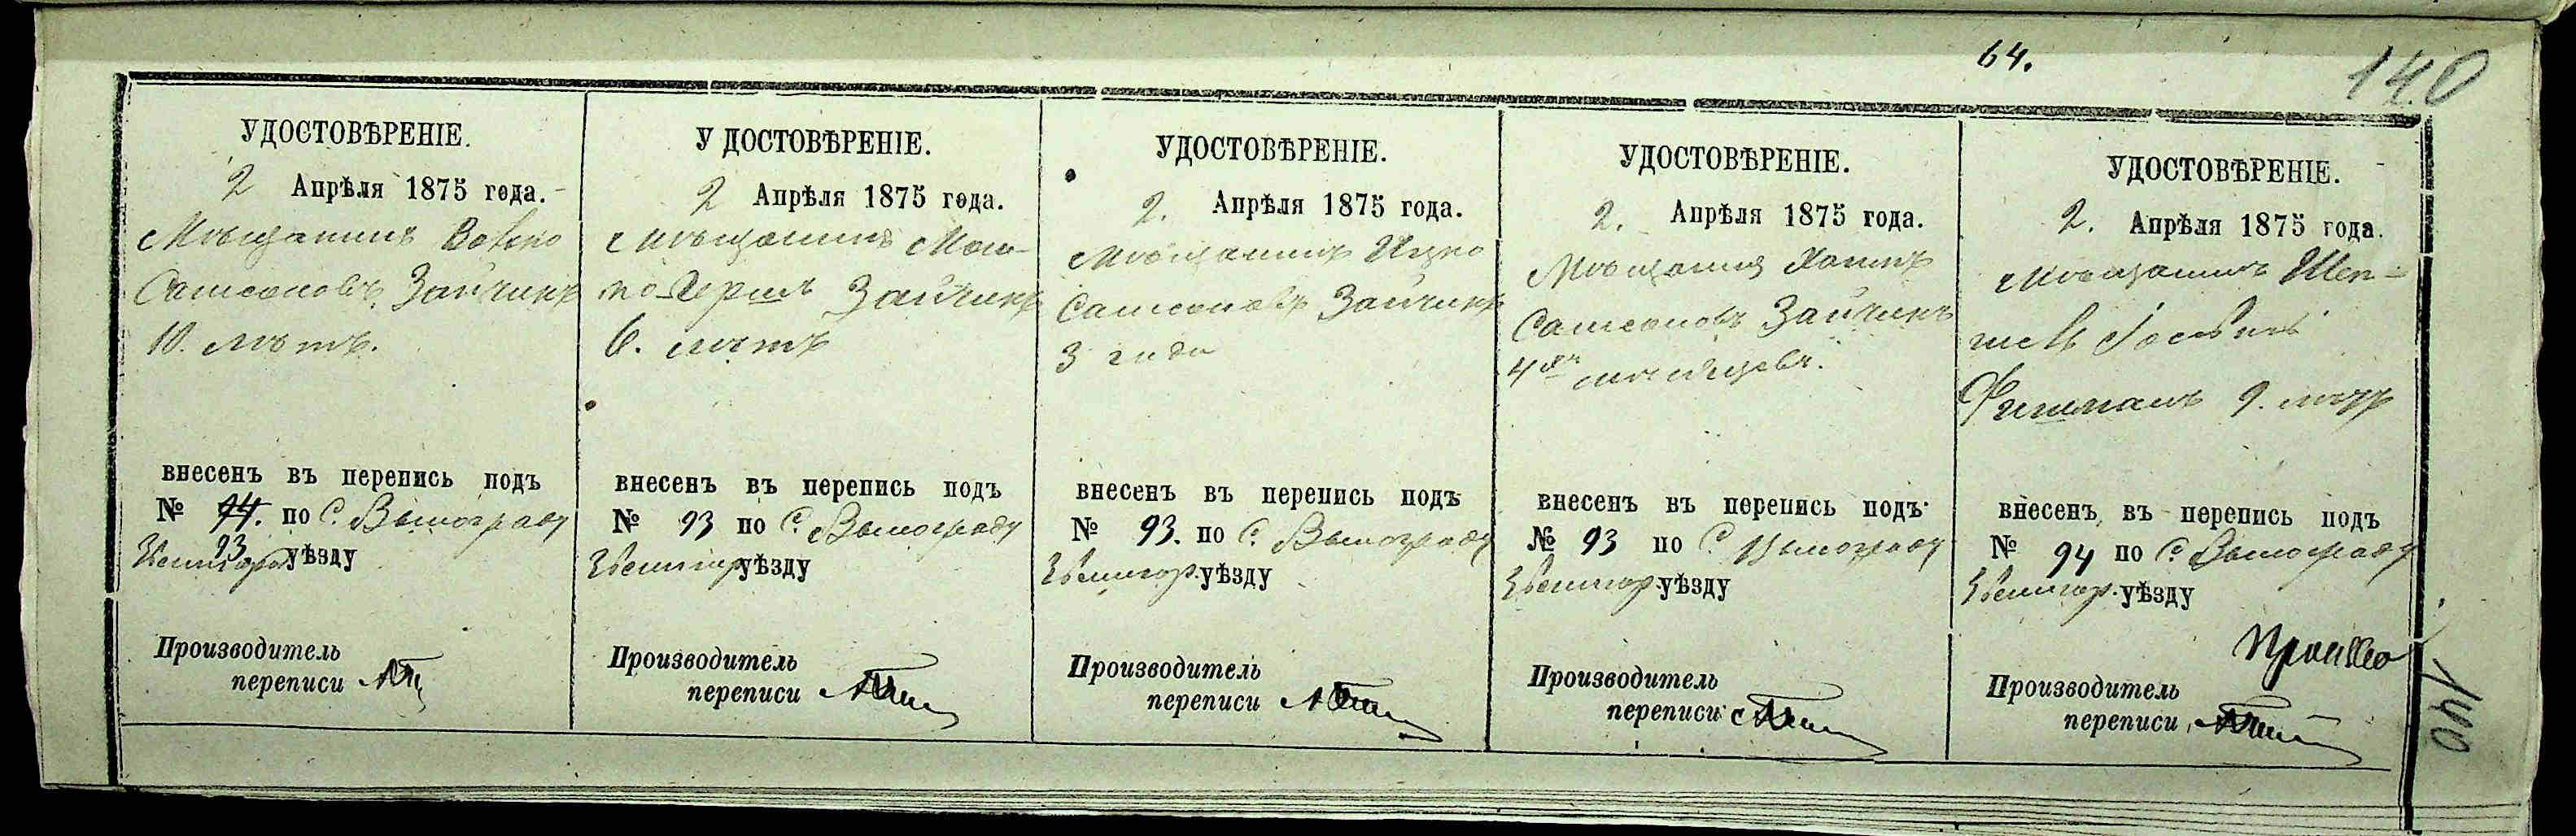 64.
140
УДОСТОВѢРЕНІЕ.
2 Апрѣля 1875 года.
Мѣщанинъ Вовко
Самсоновъ Зайчикъ
10. лѣтъ.
внесенъ въ перепись подъ
№ 94. по С. Винограду
93
Звенигор уѣзду
Производитель
переписи
УДОСТОВѢРЕНІЕ.
2 Апрѣля 1875 года.
Мѣщанинъ Мош-
ко-Гершъ Зайчикъ
6. лѣтъ
внесенъ въ перепись подъ
№ 93 по С. Винограду
Звенигор уѣзду
Производитель
переписи
УДОСТОВѢРЕНІЕ.
2. Апрѣля 1875 года.
Мѣщанинъ Ицко
Самсоновъ Зайчикъ
3 года
внесенъ въ перепись подъ
№ 93. по С. Винограду
Звенигор. уѣзду
Производитель
переписи
УДОСТОВѢРЕНІЕ.
2. Апрѣля 1875 года.
Мѣщанинъ Хаимъ
Самсоновъ Зайчикъ
4хъ мѣсяцевъ.
внесенъ въ перепись подъ
№ 93 по С. Винограду
Звенигор. уѣзду
Производитель
переписи
УДОСТОВѢРЕНІЕ.
2. Апрѣля 1875 года.
Мѣщанинъ Шеп-
Іосевъ
Фишманъ 9. лѣтъ
внесенъ въ перепись подъ
№ 94 по С. Винограду
Звенигор. уѣзду
Производитель
переписи
140